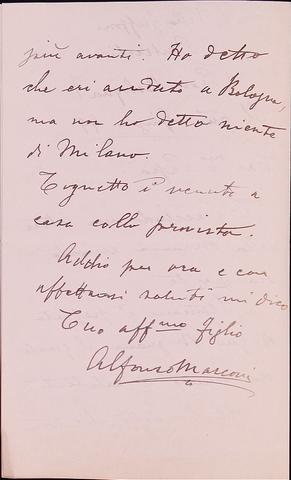 più avanti. Ho detto
che eri andato a Bologna,
ma non ho detto niente
di Milano.
Tognetto è venuto a
casa colla provvista.
Addio per ora e con
affettuosi saluti mi dico
Tuo aff.mo figlio
Alfonso Marconi